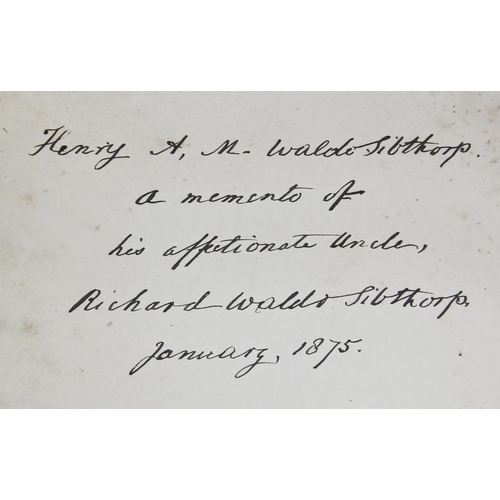 Henry A, M- Waldo Sibthorp.
a memento of
his affetionate Uncle,
Richard Waldo Sibthorp.
January, 1875.